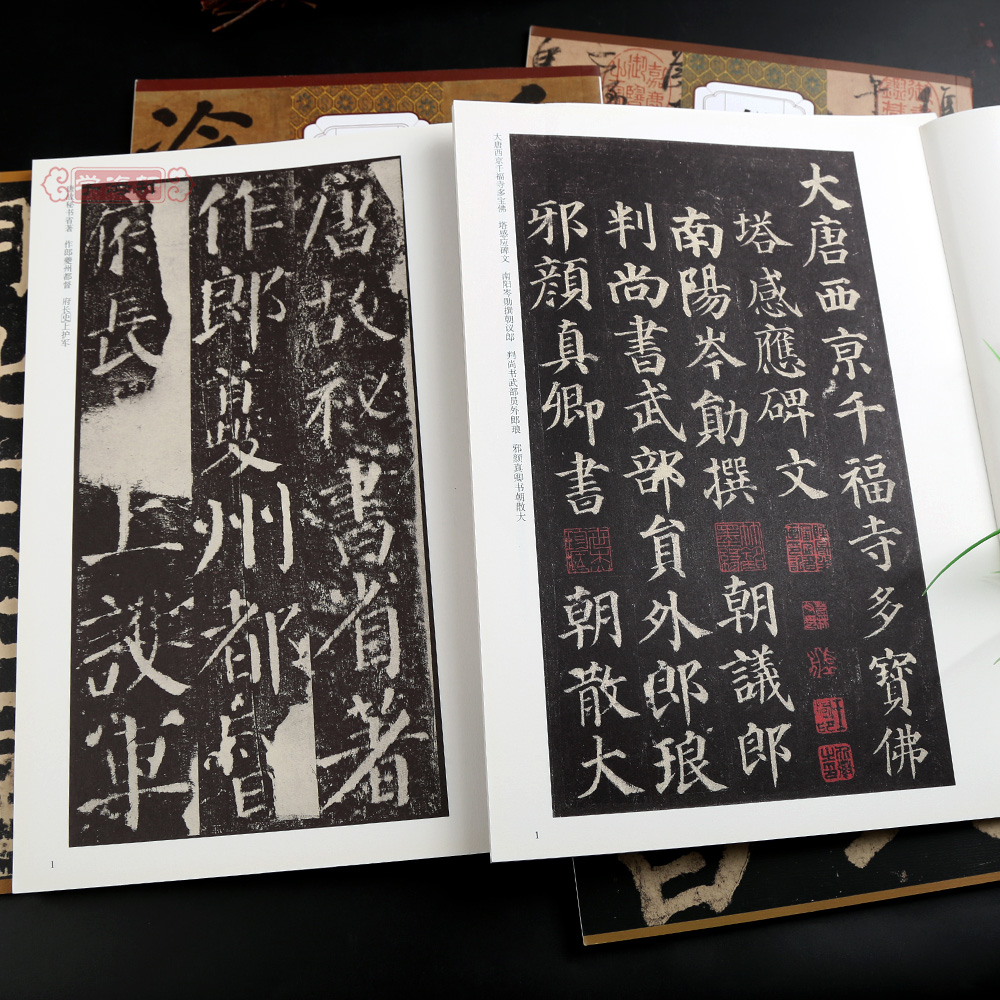 大唐西京千福寺多寶佛
塔感應碑文
南陽岑勛撰朝議郎
判尚書武部員外郎琅
邪顏真卿書朝散大
大唐西京千福寺多宝佛 塔感应碑文 南阳岑勋撰朝议郎 判尚书武部员外郎琅 邪颜真卿书朝散大
1
唐故祕書省著
作郎夔州都督
府長
上護軍
秘书省著 作郎夔州都督 府长史上护军
1